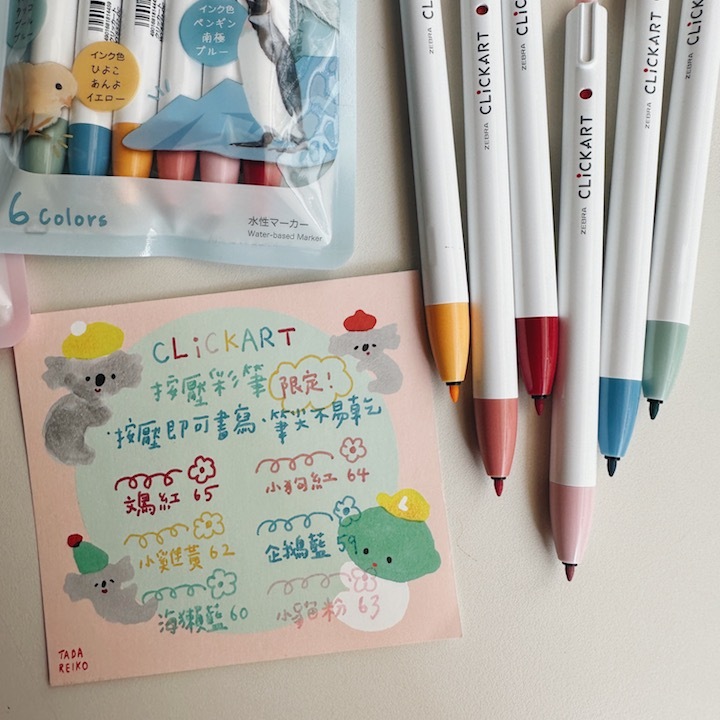 インク色
ひよこ
あんよ
イエロー
インク色
ペンギン
南極
ブルー
6 Colors
水性マーカー
Water-based Marker
ZEBRA CLiCKART
ZEBRA CLiCKART
ZEBRA CLiCKART
ZEBRA CLiCKART
ZEBRA CLiCKART
ZEBRA CLiCKART
CLiCKART
按壓彩筆 限定!
·按壓即可書寫·筆尖不易乾
文鳥紅 65
小狗紅 64
小雞黃 62
企鵝藍 59
海獺藍 60
小貓粉 63
TADA
REIKO